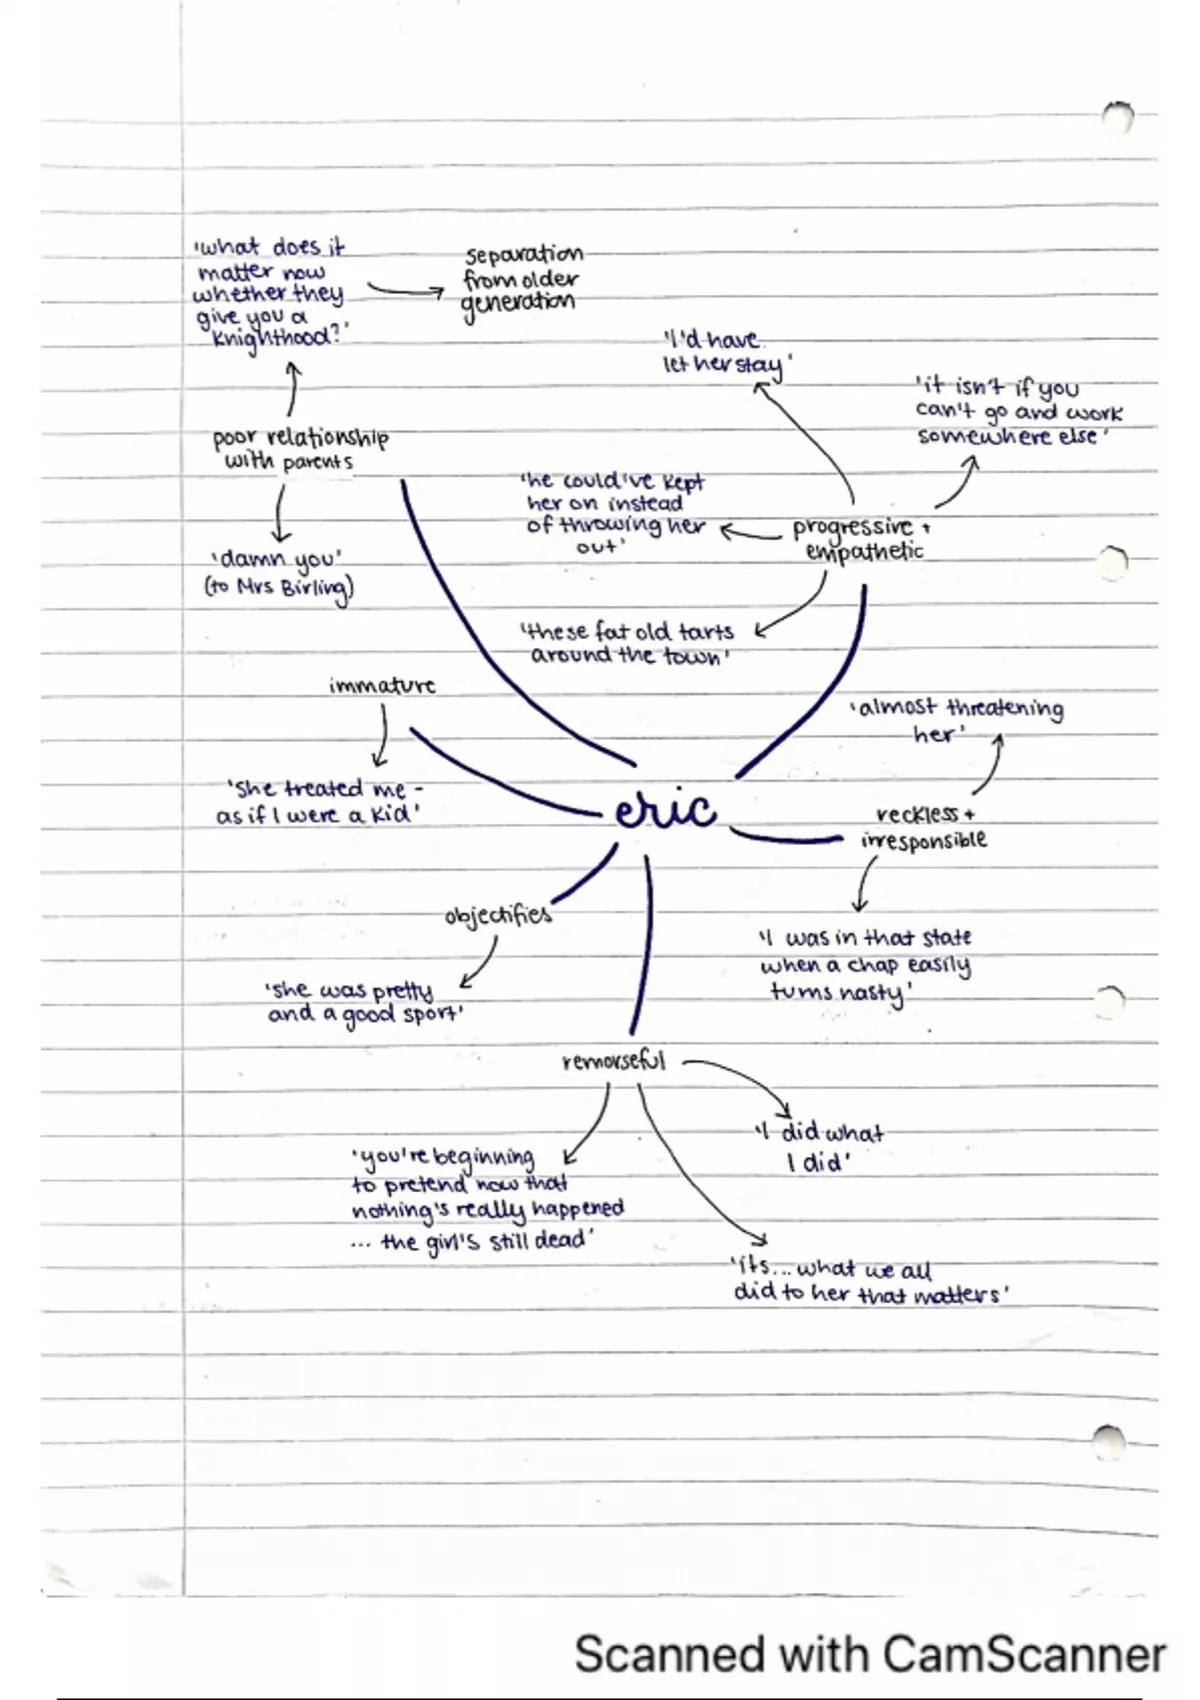 'what does it
matter now
whether they
give you a
knighthood?'
separation
from older
generation
poor relationship
with parents
'damn you'
(to Mrs Birling)
'I'd have
let her stay'
'it isn't if you
can't go and work
somewhere else'
'he could've kept
her on instead
of throwing her
out'
progressive +
empathetic
'these fat old tarts
around the town'
immature
'she treated me -
as if I were a kid'
eric
'almost threatening
her'
reckless +
irresponsible
'I was in that state
when a chap easily
turns nasty'
objectifies
'she was pretty
and a good sport'
remorseful
'I did what
I did'
'you're beginning
to pretend now that
nothing's really happened
... the girl's still dead'
'its... what we all
did to her that matters'
Scanned with CamScanner